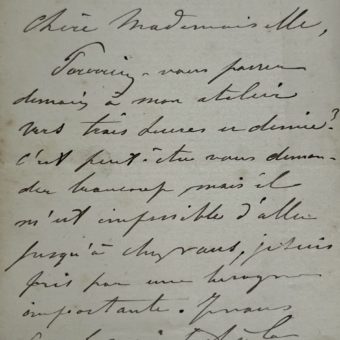 Chère Mademoiselle,
Pourriez-vous passer
demain à mon atelier
vers trois heures et demie?
C'est peut-être vous deman-
der beaucoup mais il
m'est impossible d'aller
jusqu'à chez vous, je suis
pris par une besogne
importante. Je vous